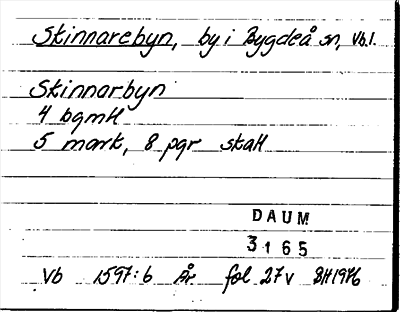 Skinnarebyn, by i Bygdeå sn, Vb.l.
Skinnarbyn
4 bgmtl
5 mark, 8 pgr skatt
DAUM
3165
Vb 1597:6 År fol 27v BH1976